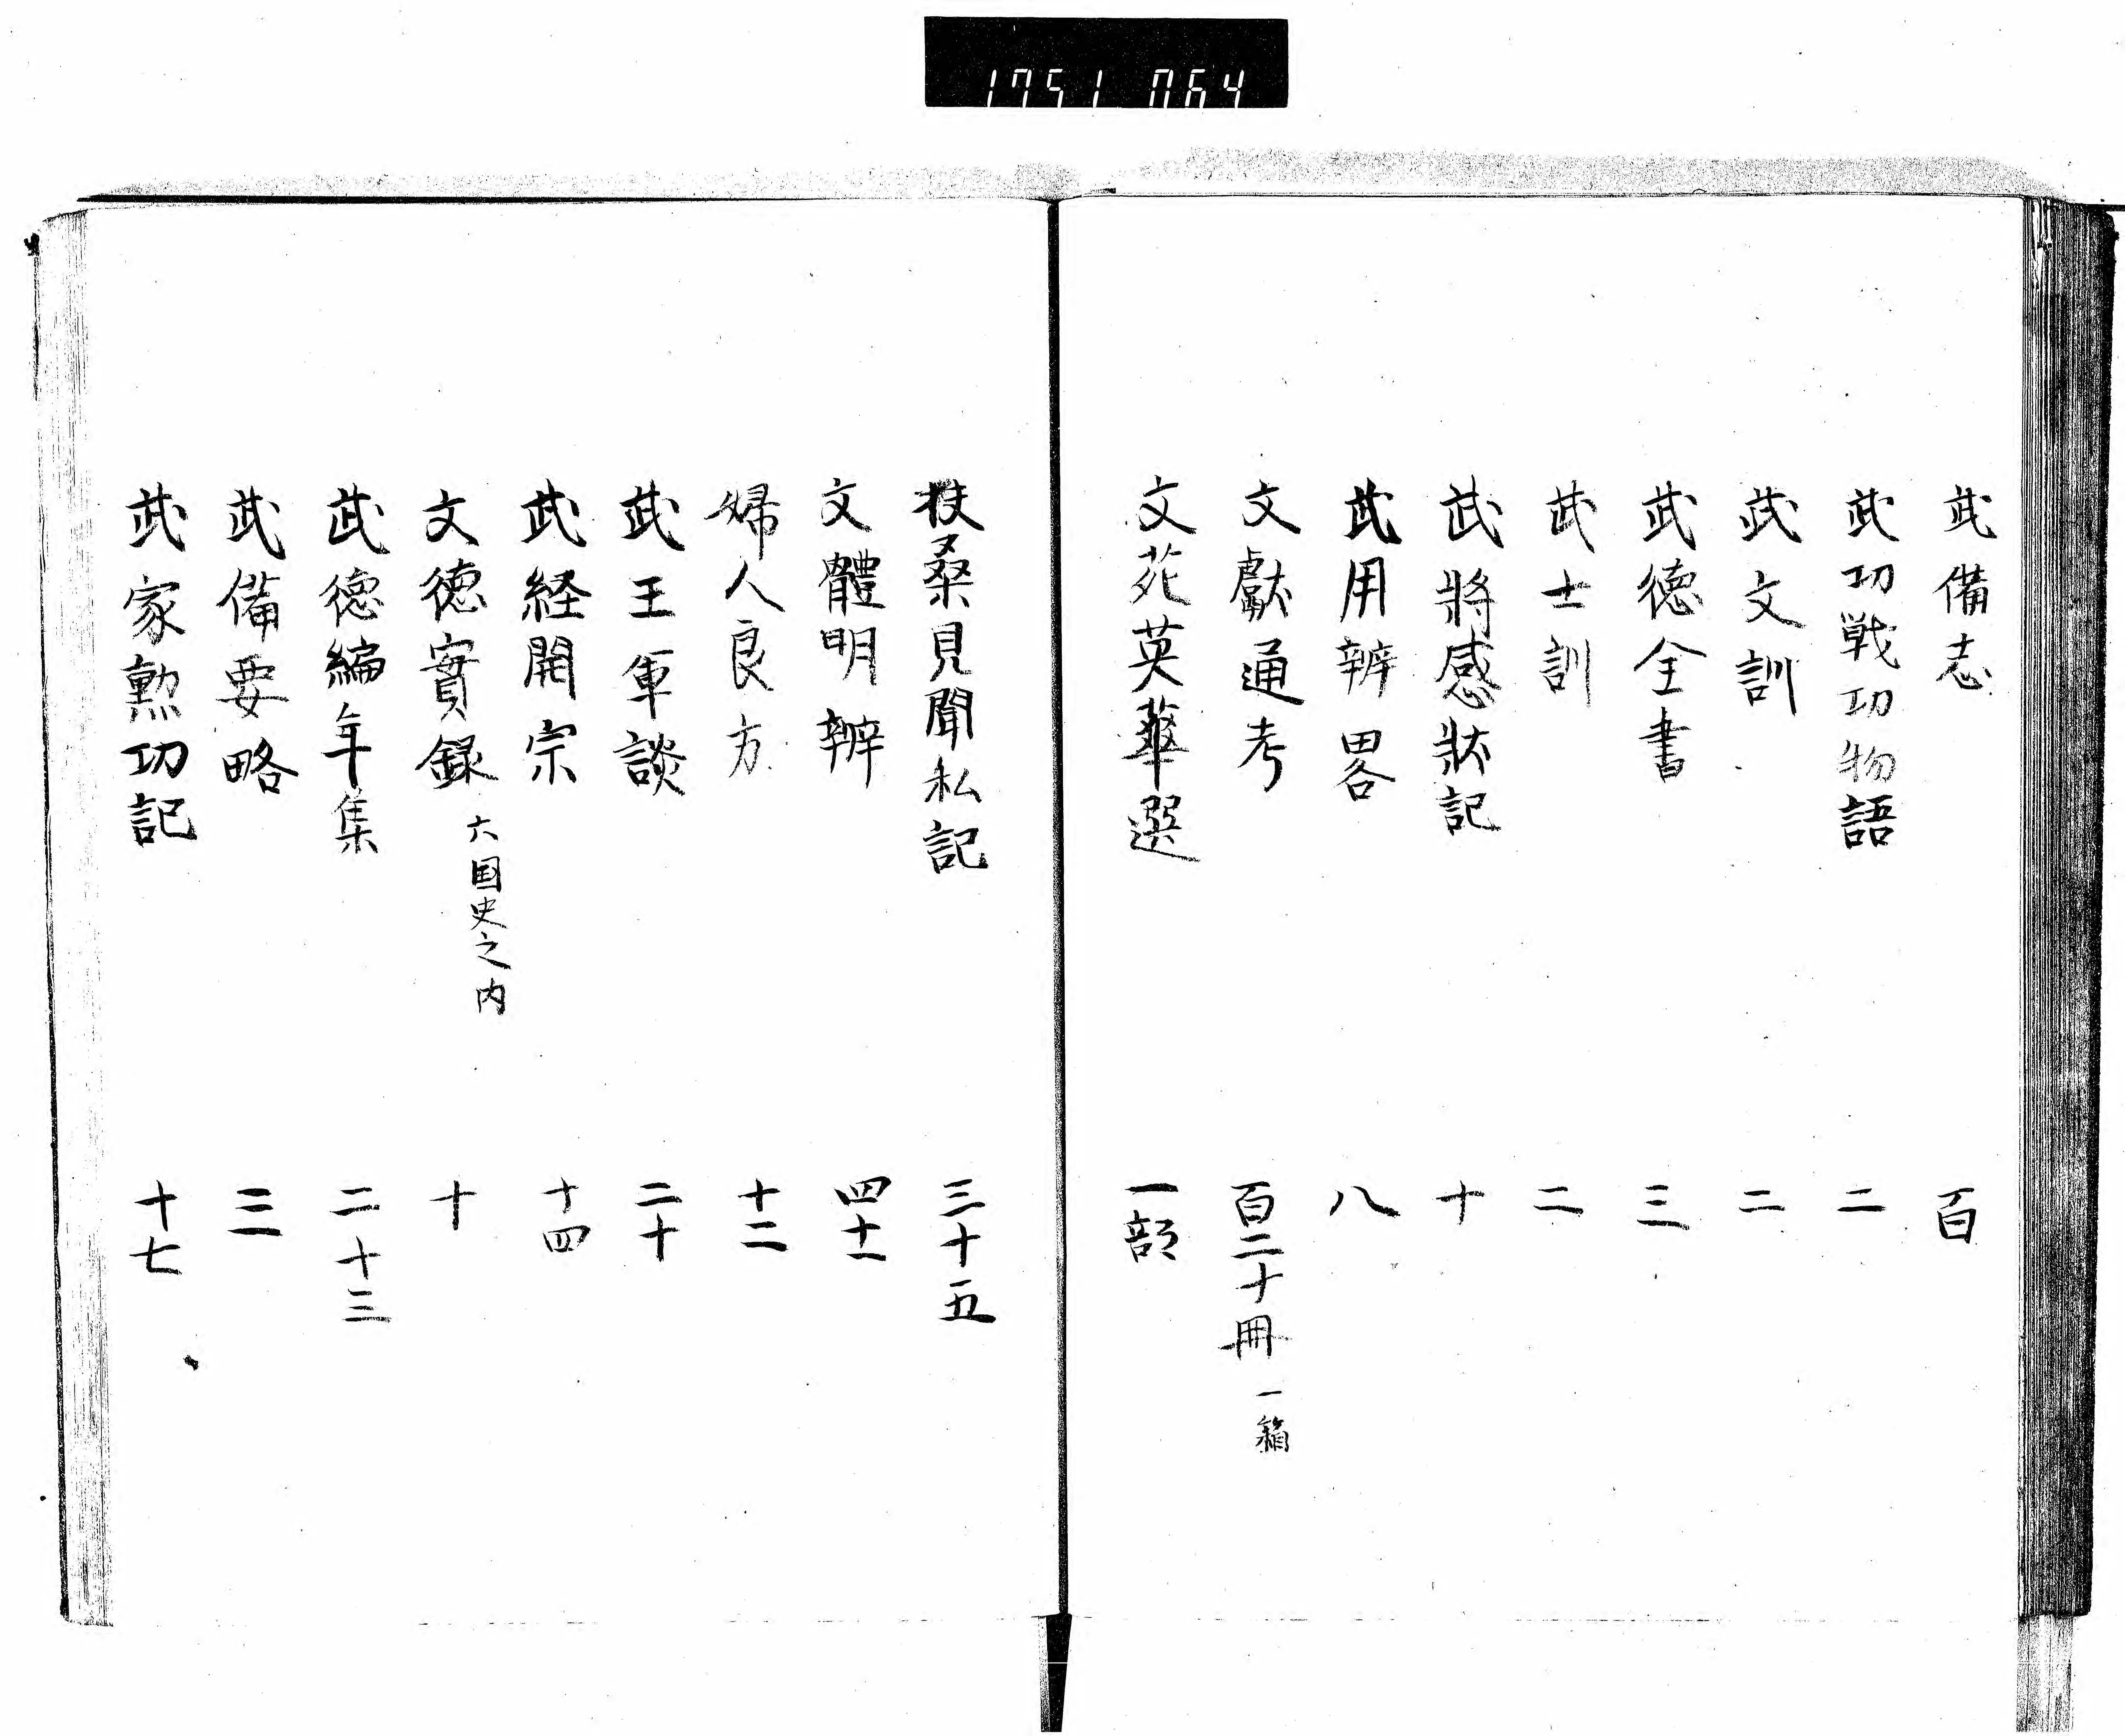 1751 064
武備志 百
武功戦功物語 二
武文訓 二
武徳全書 三
武士訓 二
武將感狀記 十
武用辨畧 八
文獻通考 百二十冊 一箱
文苑英華選 一部
扶桑見聞私記 三十五
文體明辨 四十一
婦人良方 十二
武王軍談 二十
武経開宗 十四
文徳實録 六国史之内 十
武徳編年集 二十三
武備要略 三
武家勲功記 十七